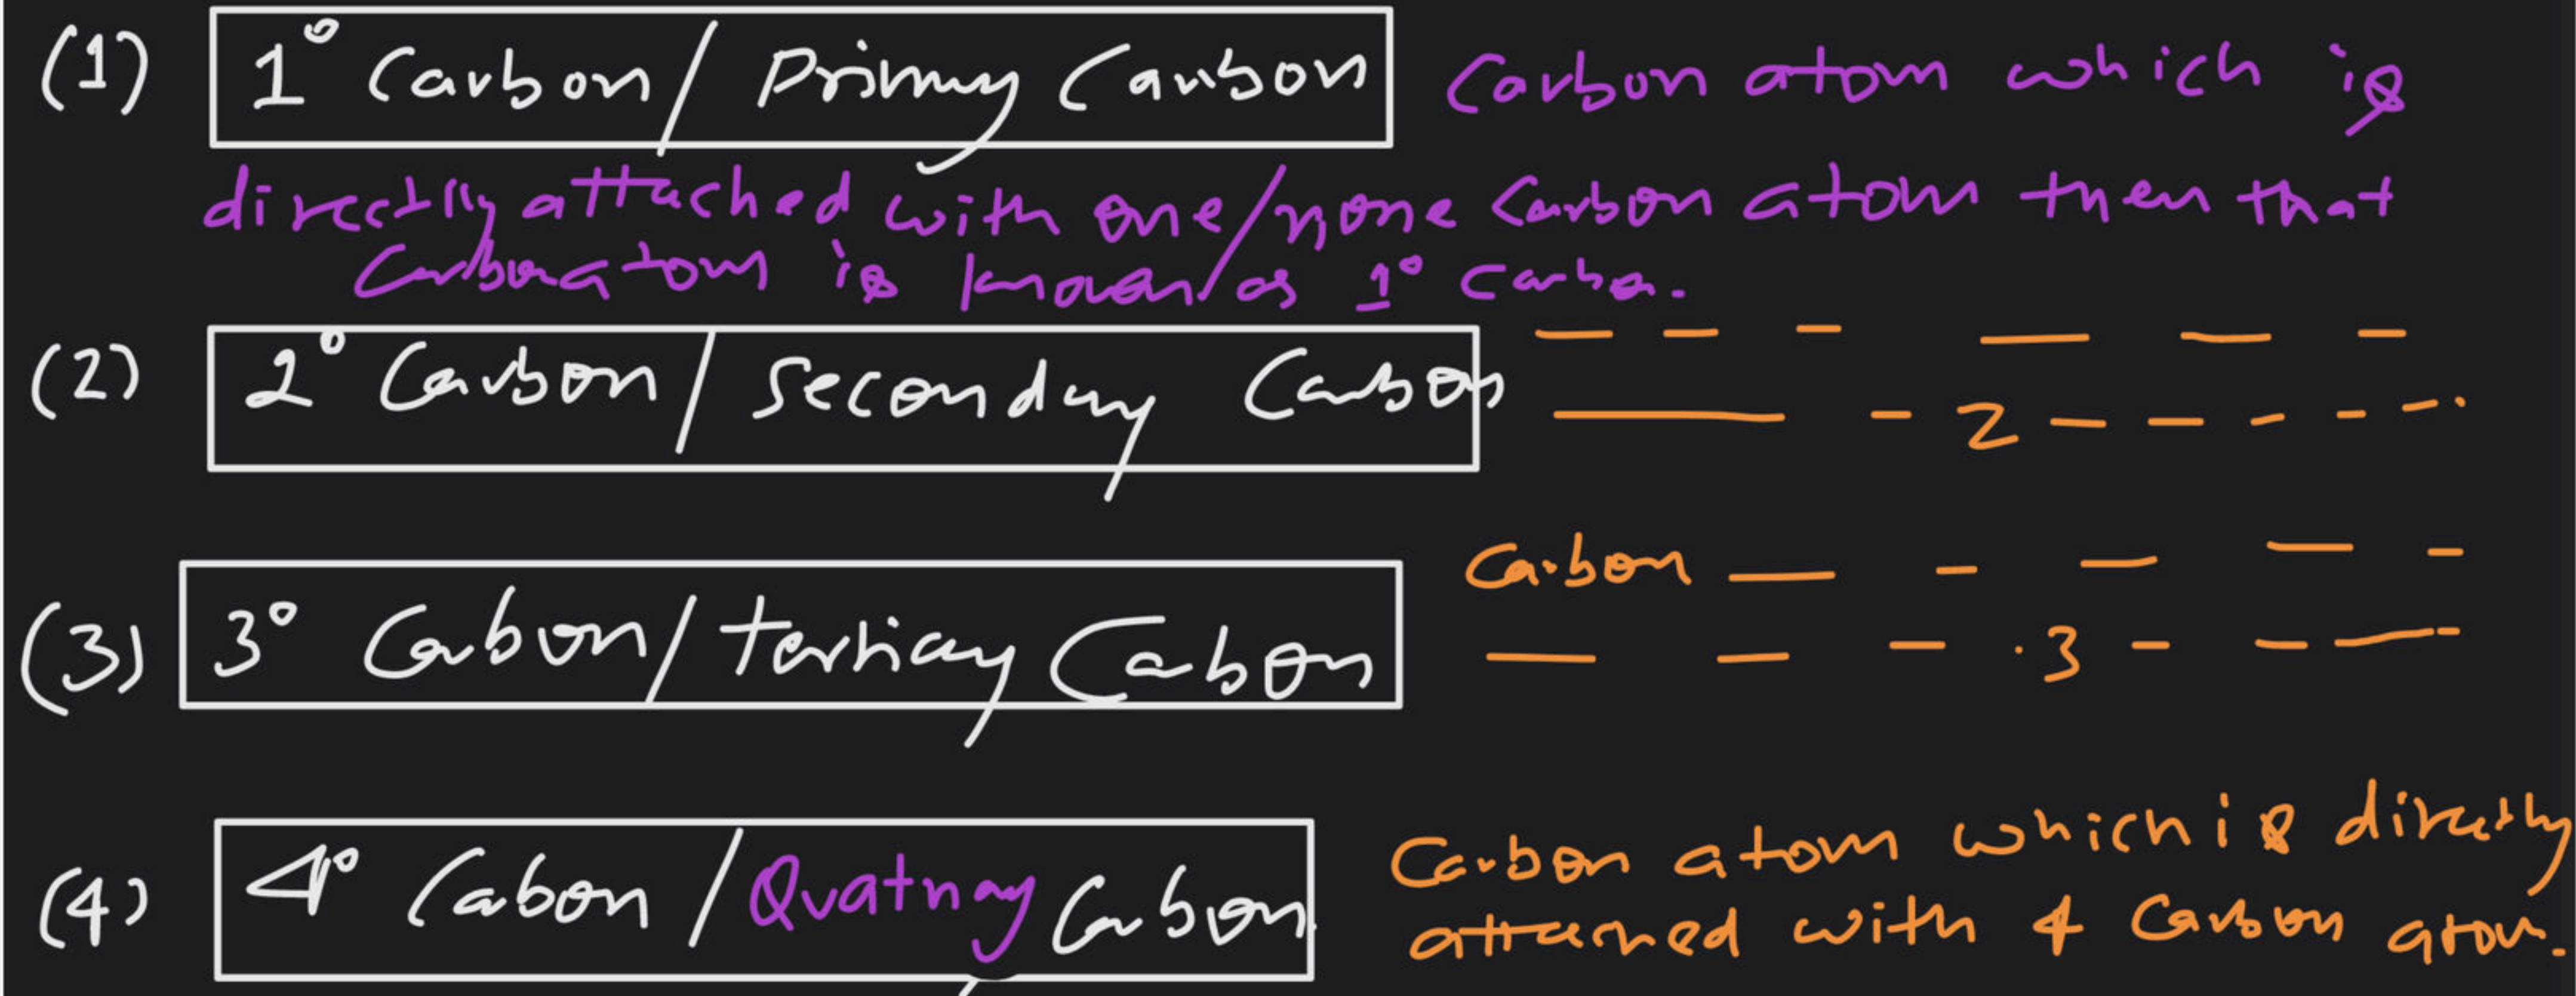 (1) 1° Carbon / Primary Carbon Carbon atom which is
directly attached with one/none Carbon atom then that
Carbon atom is known as 1° Carbon.
(2) 2° Carbon / Secondary Carbon — — — — — —
— - 2 — — - - - .
(3) 3° Carbon / tertiary Carbon Carbon — - — — -
— — — . 3 - — — -
(4) 4° Cabon / Quatnay Carbon Carbon atom which is directly
attached with 4 Carbon atom.